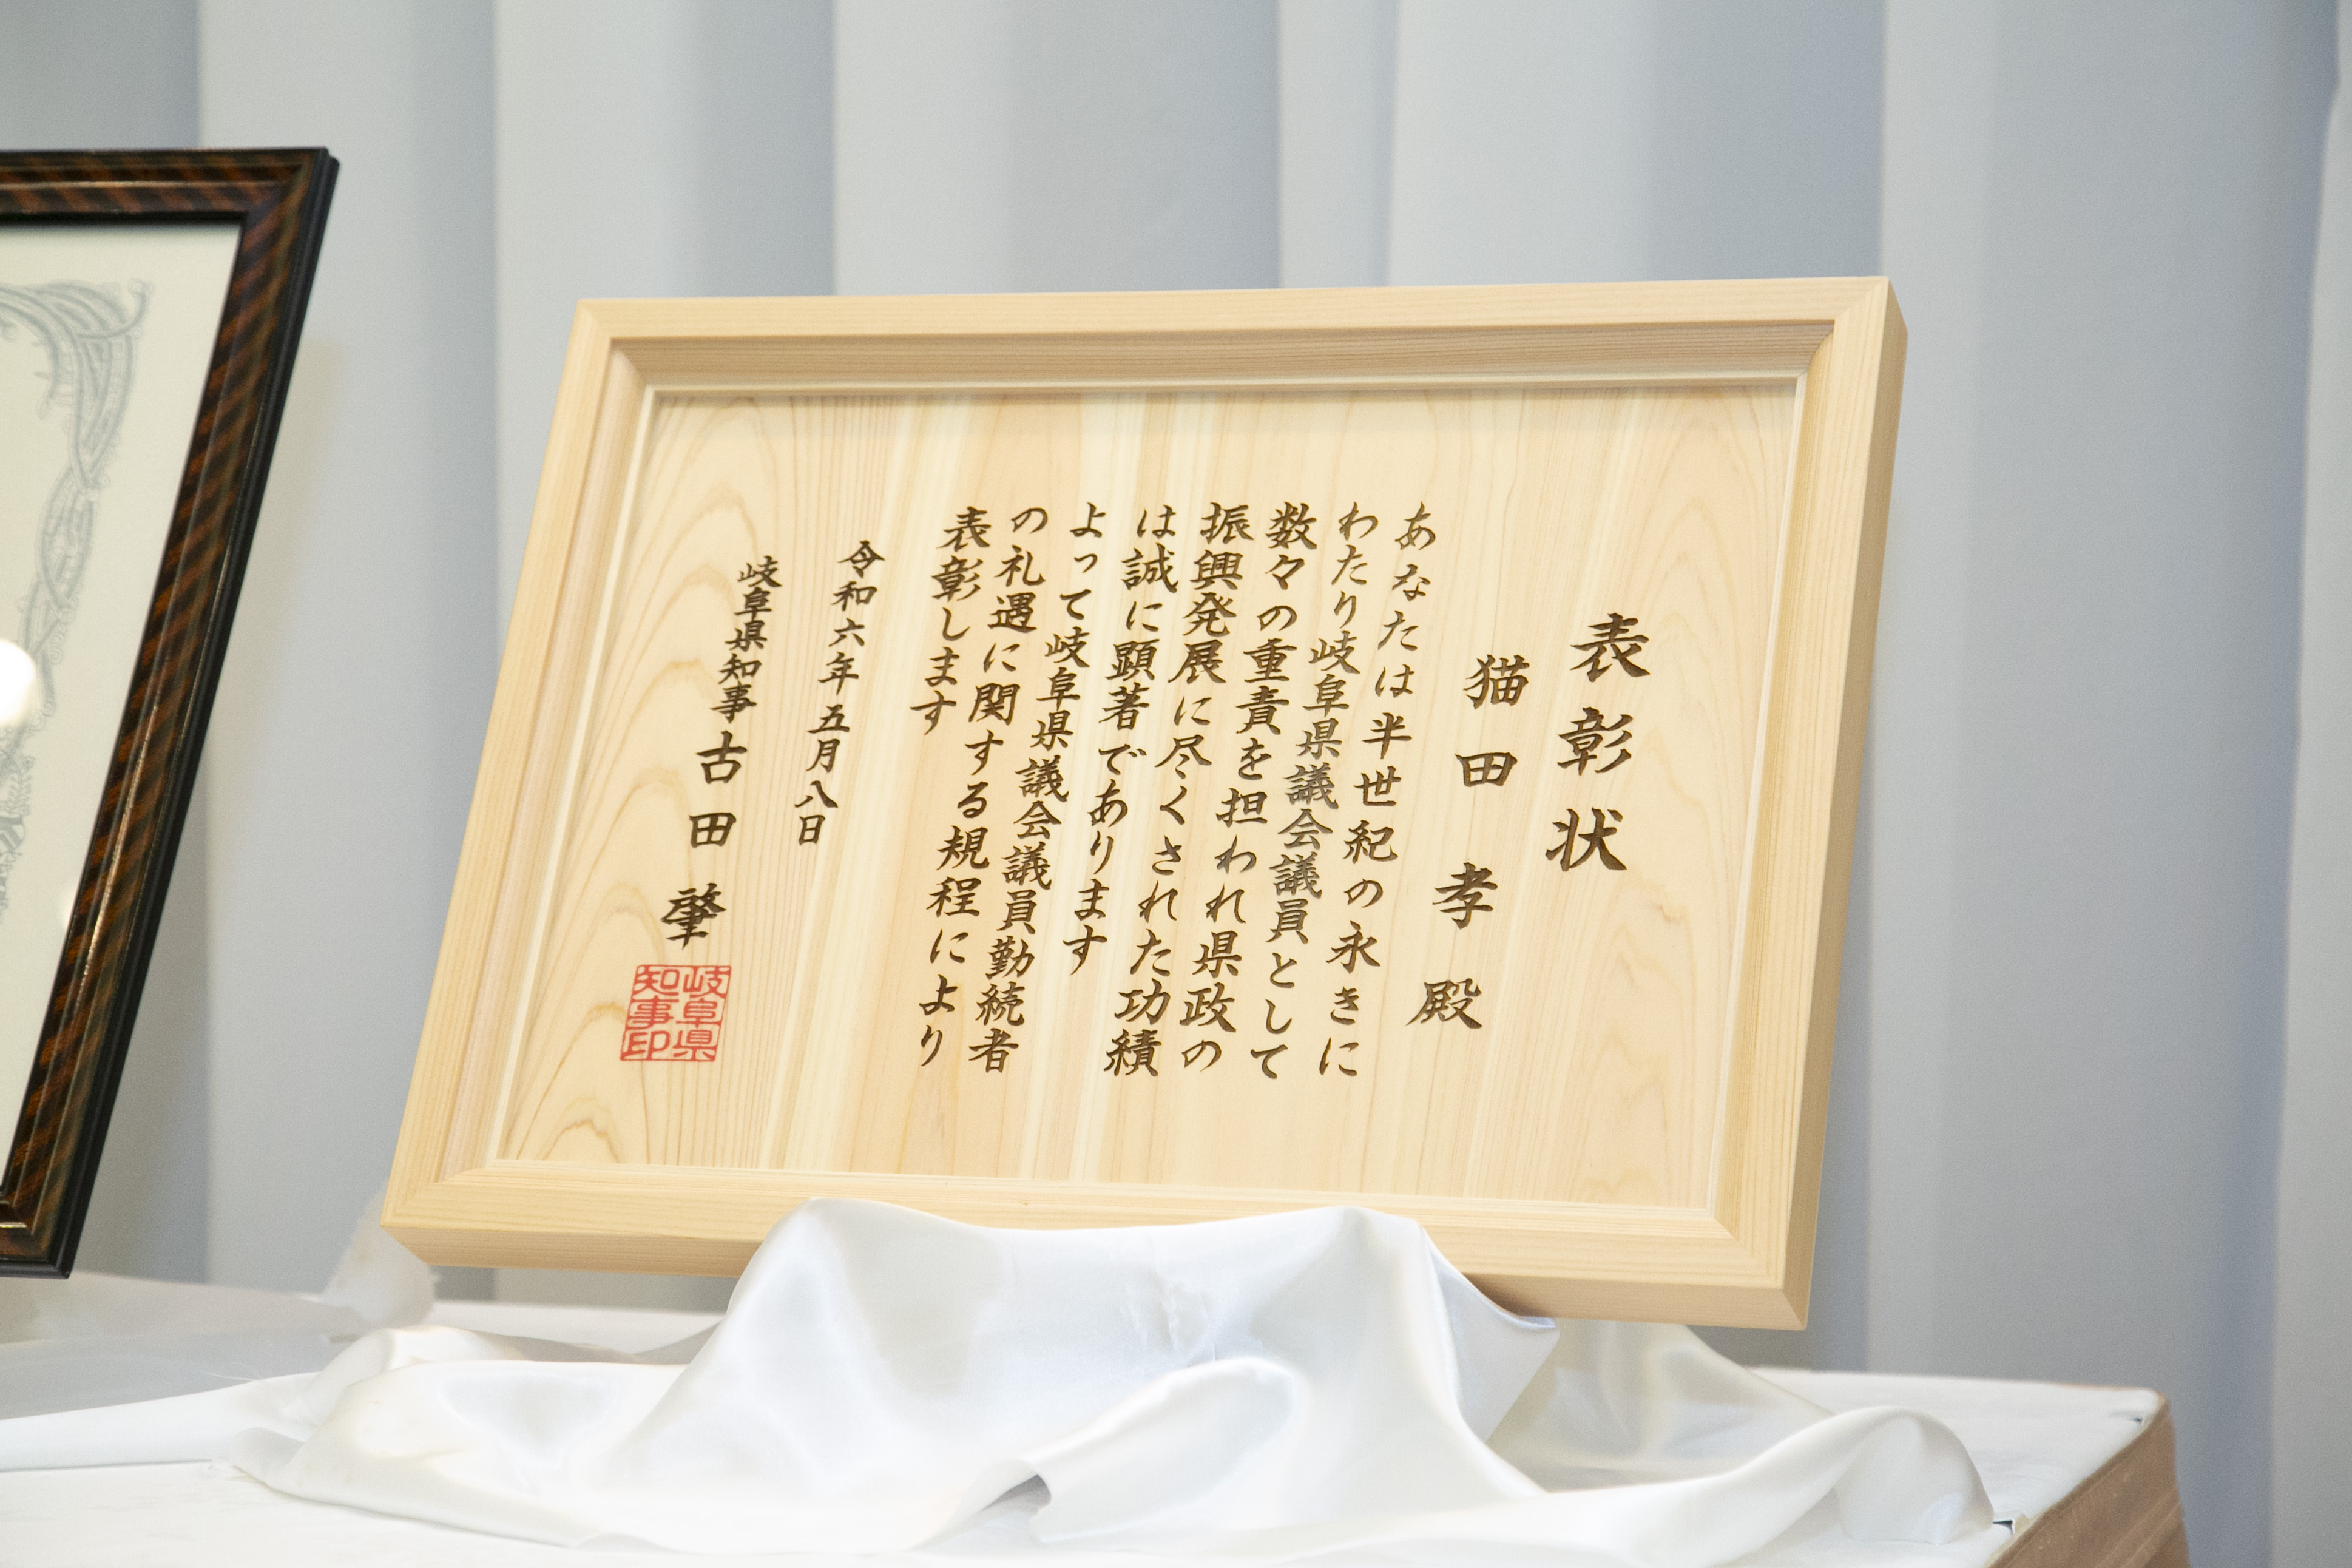 表彰状
猫田 孝 殿
あなたは半世紀の永きに
わたり岐阜県議会議員として
数々の重責を担われ県政の
振興発展に尽くされた功績
は誠に顕著であります
よって岐阜県議会議員勤続者
の礼遇に関する規程により
表彰します
令和六年五月八日
岐阜県知事 古田 肇
岐阜県
知事印